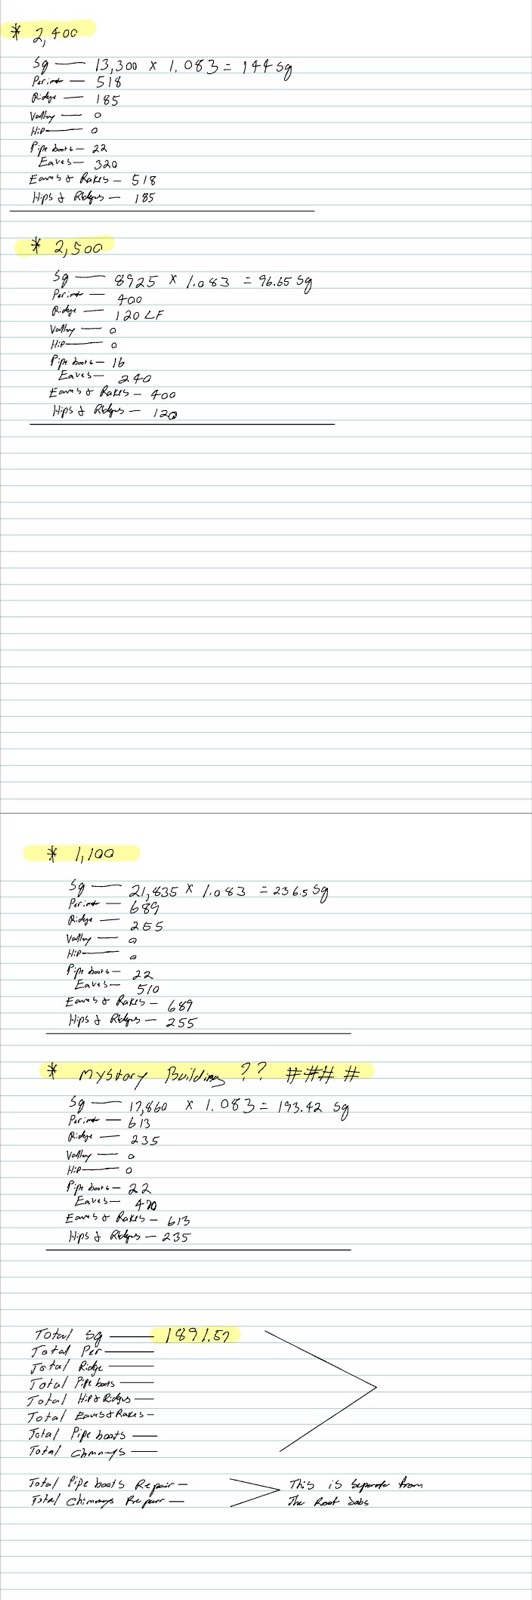 * 2,400
Sq — 13,300 x 1.083 = 144 Sq
Perimt — 518
Ridge — 185
Valley — 0
Hip — 0
Pipe boots — 22
Eaves — 320
Eaves & Rakes — 518
Hips & Ridges — 185
* 2,500
Sq — 8925 x 1.083 = 96.65 Sq
Perimt — 400
Ridge — 120 LF
Valley — 0
Hip — 0
Pipe boots — 16
Eaves — 240
Eaves & Rakes — 400
Hips & Ridges — 120
* 1,100
Sq — 21,835 x 1.083 = 236.5 Sq
Perimt — 689
Ridge — 255
Valley — 0
Hip — 0
Pipe boots — 22
Eaves — 510
Eaves & Rakes — 689
Hips & Ridges — 255
* Mystory Building ?? ####
Sq — 17,860 x 1.083 = 193.42 Sq
Perimt — 613
Ridge — 235
Valley — 0
Hip — 0
Pipe boots — 22
Eaves — 470
Eaves & Rakes — 613
Hips & Ridges — 235
Total Sq — 1891.57
Total Per —
Total Ridge —
Total Pipe boots —
Total Hip & Ridges —
Total Eaves & Rakes —
Total Pipe boots —
Total Chimnys —
Total Pipe boots Repair —
Total Chimnys Repair —
This is seperate from
The Roof Jobs